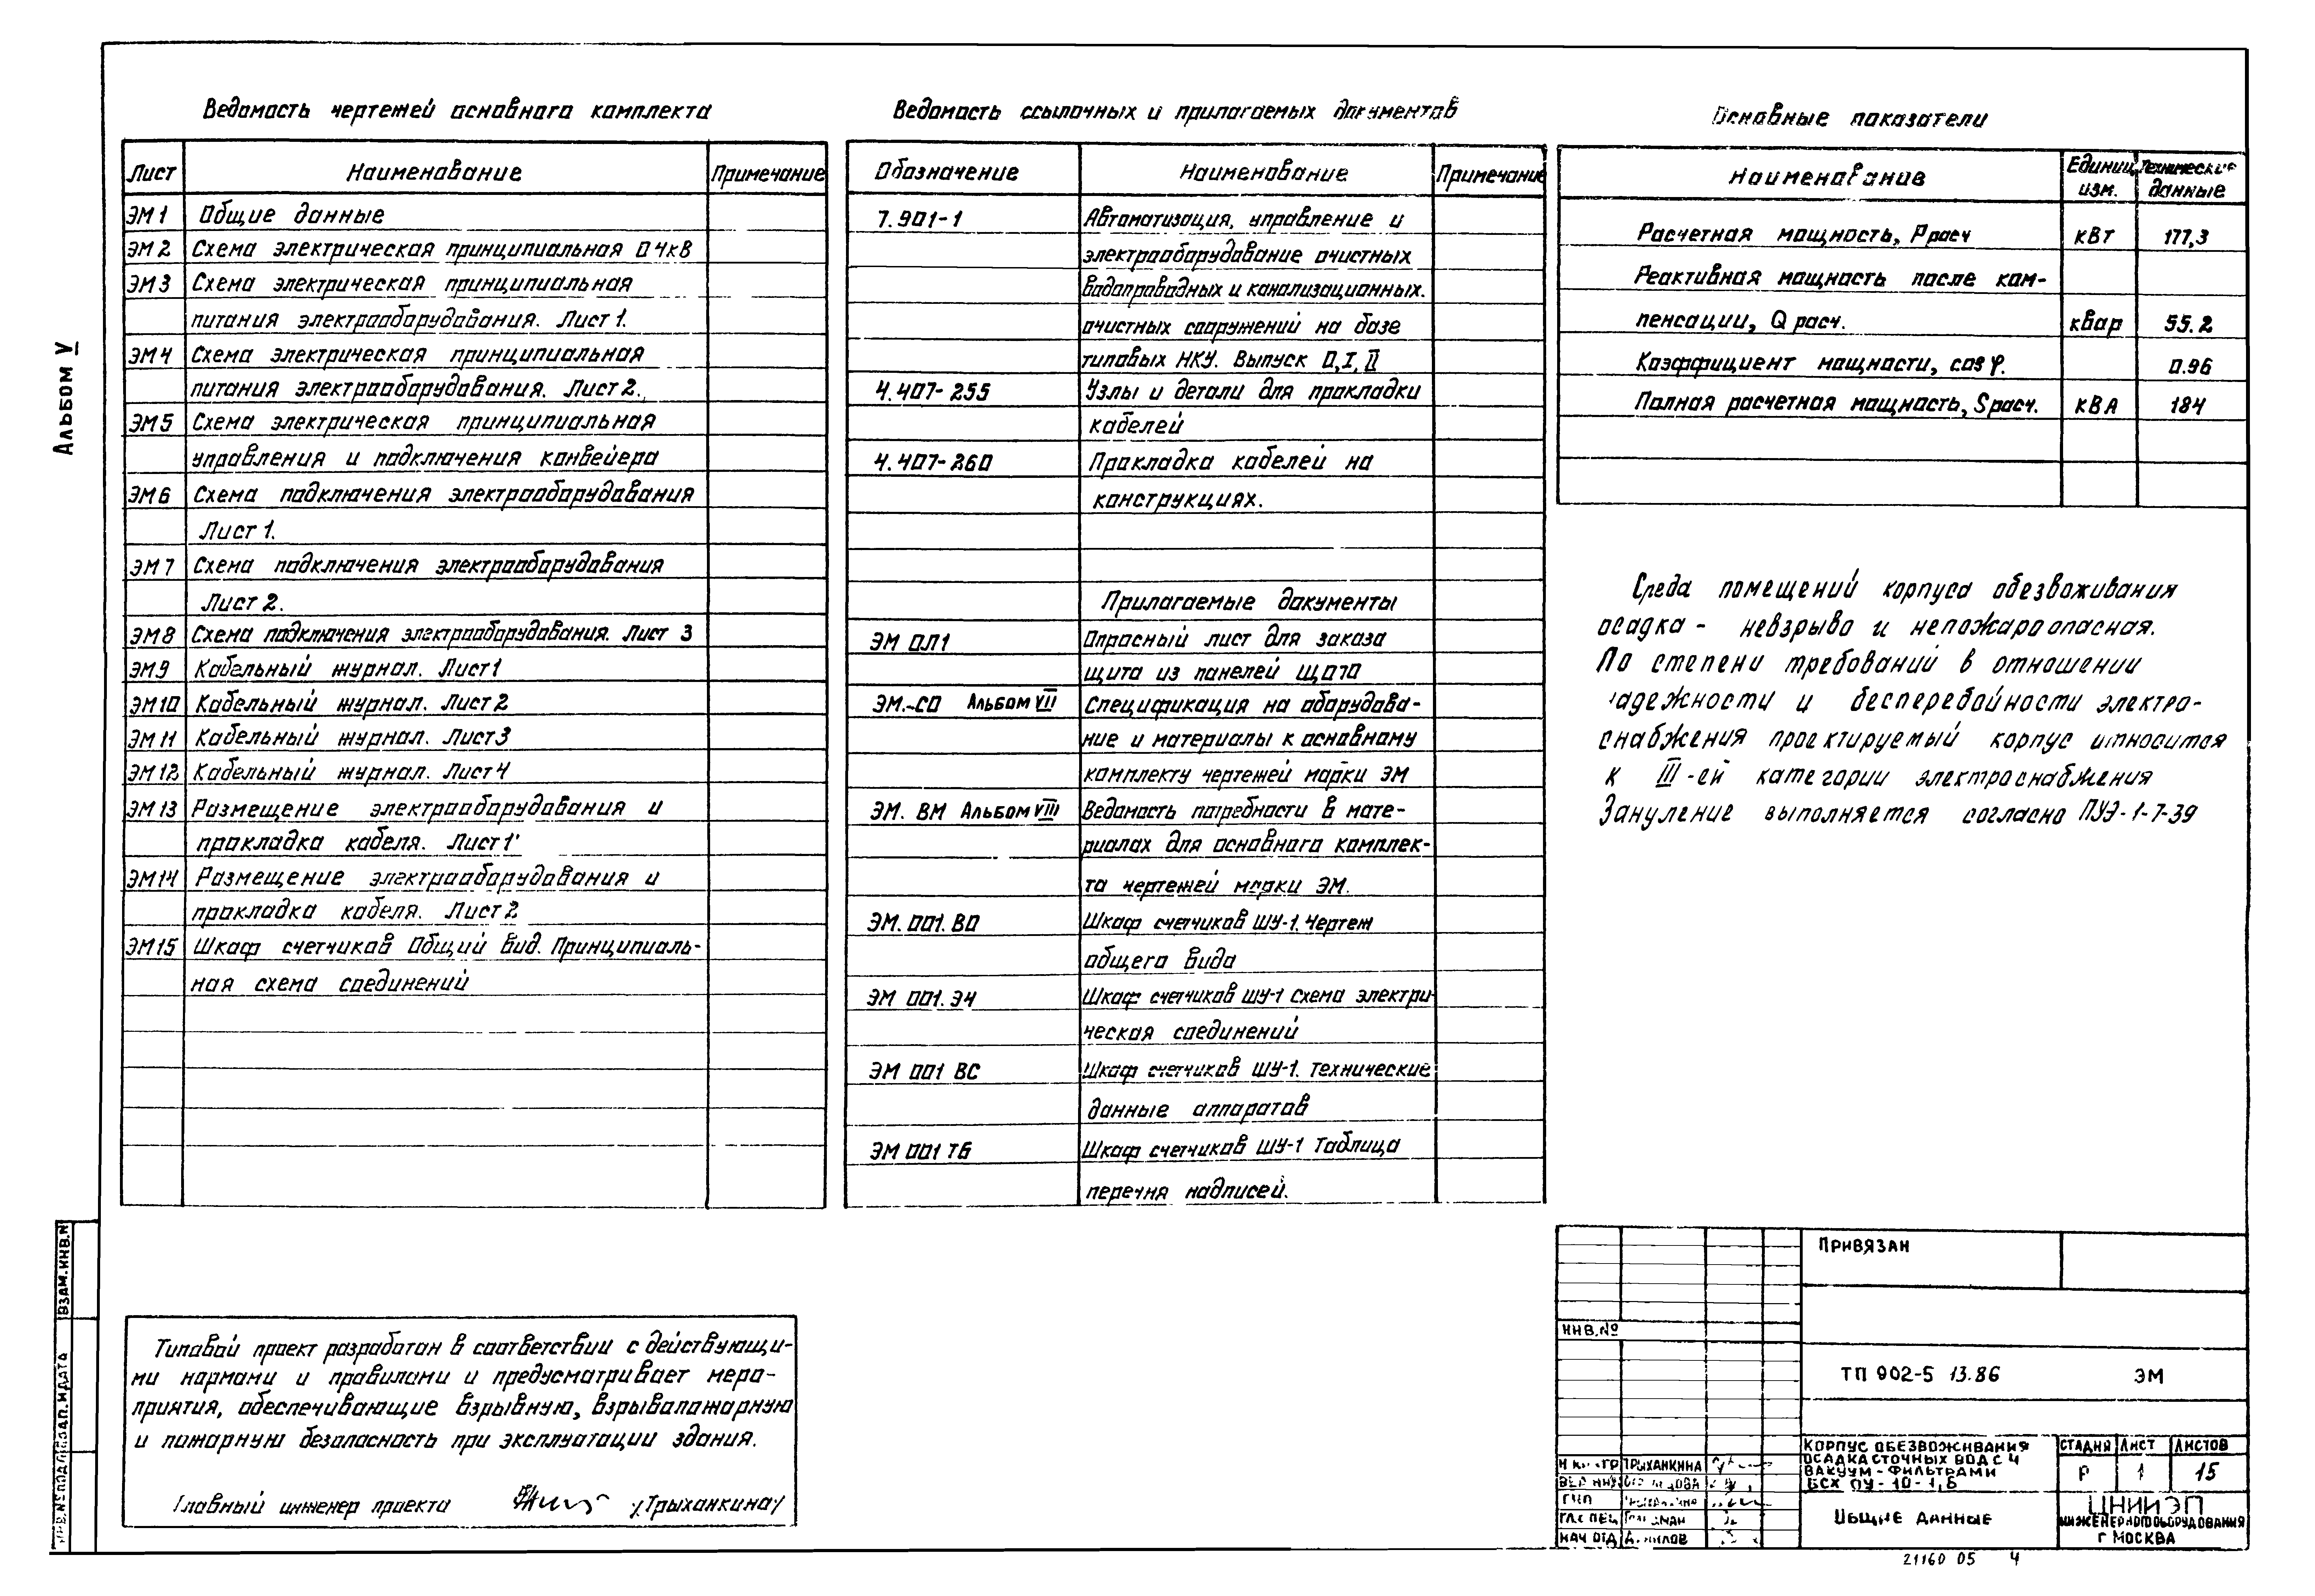 Альбом V
Ведомость чертежей основного комплекта
Лист Наименование Примечание
ЭМ1 Общие данные
ЭМ2 Схема электрическая принципиальная 0 4кВ
ЭМ3 Схема электрическая принципиальная
питания электрооборудования. Лист 1.
ЭМ4 Схема электрическая принципиальная
питания электрооборудования. Лист 2.
ЭМ5 Схема электрическая принципиальная
управления и подключения конвейера
ЭМ6 Схема подключения электрооборудования
Лист 1.
ЭМ7 Схема подключения электрооборудования
Лист 2.
ЭМ8 Схема подключения электрооборудования. Лист 3
ЭМ9 Кабельный журнал. Лист 1
ЭМ10 Кабельный журнал. Лист 2
ЭМ11 Кабельный журнал. Лист 3
ЭМ12 Кабельный журнал. Лист 4
ЭМ13 Размещение электрооборудования и
прокладка кабеля. Лист 1
ЭМ14 Размещение электрооборудования и
прокладка кабеля. Лист 2
ЭМ15 Шкаф счетчиков Общий вид. Принципиаль-
ная схема соединений
Ведомость ссылочных и прилагаемых документов
Обозначение Наименование Примечание
7.901-1 Автоматизация, управление и
электрооборудование очистных
водопроводных и канализационных.
очистных сооружений на базе
типовых НКУ. Выпуск 0, I, II
4.407-255 Узлы и детали для прокладки
кабелей
4.407-260 Прокладка кабелей на
конструкциях.
Прилагаемые документы
ЭМ ОЛ1 Опросный лист для заказа
щита из панелей ЩО70
ЭМ.-СО Альбом VII Спецификация на оборудова-
ние и материалы к основному
комплекту чертежей марки ЭМ
ЭМ. ВМ Альбом VIII Ведомость потребности в мате-
риалах для основного комплек-
та чертежей марки ЭМ.
ЭМ. 001. ВО Шкаф счетчиков ШУ-1. Чертеж
общего вида
ЭМ 001. Э4 Шкаф счетчиков ШУ-1 Схема электри
ческая соединений
ЭМ 001 ВС Шкаф счетчиков ШУ-1. Технические
данные аппаратов
ЭМ 001 ТБ Шкаф счетчиков ШУ-1 Таблица
перечня надписей.
Основные показатели
Наименование Единиц. изм. Технические данные
Расчетная мощность, Р расч кВт 177,3
Реактивная мощность после ком-
пенсации, Q расч. квар 55.2
Коэффициент мощности, cos φ. 0.96
Полная расчетная мощность, S расч. кВА 184
Среда помещений корпуса обезвоживания
осадка - невзрыво и непожароопасная.
По степени требований в отношении
надежности и бесперебойности электро-
снабжения проектируемый корпус относится
к III-ей категории электроснабжения
Зануление выполняется согласно ПУЭ-1-7-39
Типовой проект разработан в соответствии с действующи-
ми нормами и правилами и предусматривает меро-
приятия, обеспечивающие взрывную, взрывопожарную
и пожарную безопасность при эксплуатации здания.
Главный инженер проекта /Трыханкина/
ВЗАМ.ИНВ.N
Привязан
ИНВ.№
ТП 902-5 13.86 ЭМ
Корпус обезвоживания
осадка сточных вод с 4
вакуум-фильтрами
БСХ ОУ-10-1,6
Стадия Лист Листов
Р 1 15
Общие данные
ЦНИИЭП
инженерного оборудования
г Москва
Н контр Трыханкина
ГИП
Гл спец
Нач отд
21160 05 4